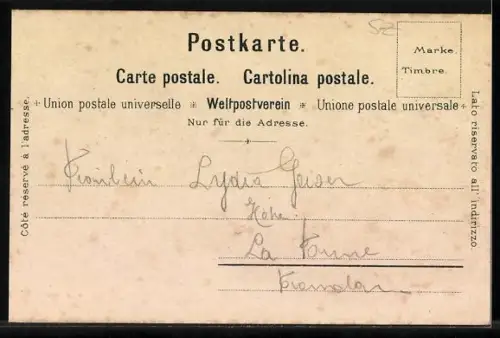 52
Postkarte.
Marke.
Timbre.
Carte postale. Cartolina postale.
Union postale universelle * Weltpostverein * Unione postale universale
Nur für die Adresse.
Côté réservé à l'adresse.
Lato riservato all' indirizzo.
Fräulein Lydia Geiser
La